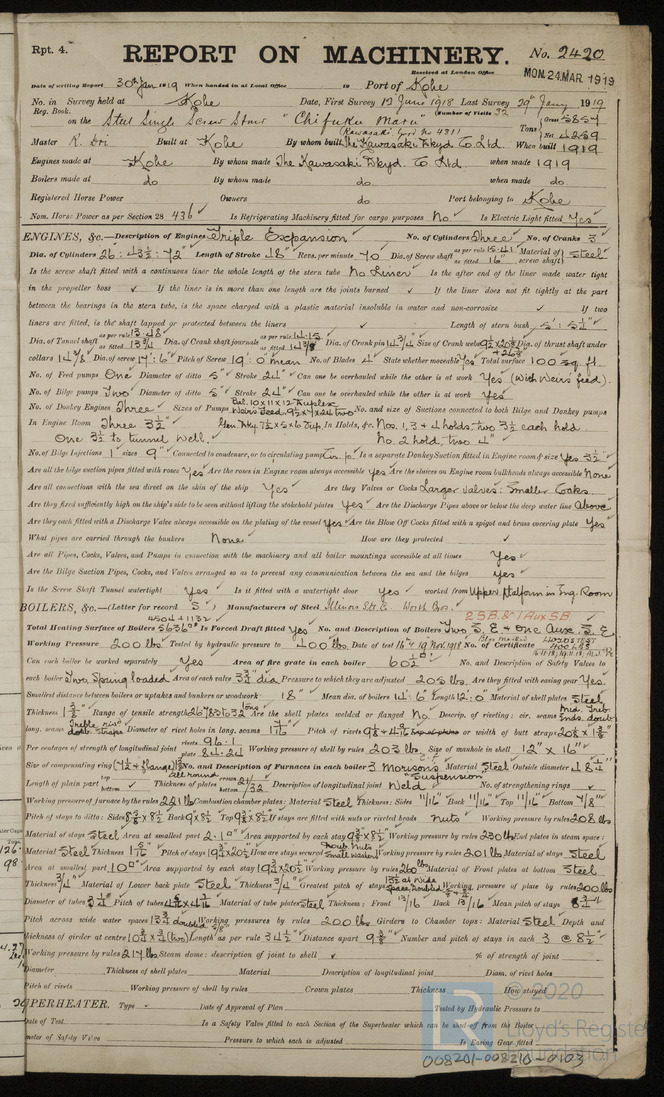 Rpt. 4.
REPORT ON MACHINERY.
No. 2420
Received at London Office
MON. 24 MAR. 1919
Date of writing Report 30th Jan 1919 When handed in at Local Office to Port of Kobe
No. in Survey held at Kobe Date, First Survey 12 June 1918 Last Survey 29th Jany 1919
Reg. Book. (Number of Visits 32
on the Steel Single Screw Steamer "Chifuku Maru" Tons Gross 5857 Net 4259
(Kawasaki yard No 4311)
Master R. Doi Built at Kobe By whom built The Kawasaki Dkyd Co. Ltd. When built 1919
Engines made at Kobe By whom made The Kawasaki Dkyd. Co. Ltd when made 1919
Boilers made at do By whom made do. when made do.
Registered Horse Power Owners do Port belonging to Kobe
Nom. Horse Power as per Section 28 436 Is Refrigerating Machinery fitted for cargo purposes No. Is Electric Light fitted Yes
ENGINES, &c.—Description of Engines Triple Expansion No. of Cylinders Three No. of Cranks 3
Dia. of Cylinders 26 : 43½ : 72" Length of Stroke 48" Revs. per minute 70 Dia. of Screw shaft as per rule 15.41 as fitted 16" Material of screw shaft Steel
Is the screw shaft fitted with a continuous liner the whole length of the stern tube No Liner Is the after end of the liner made water tight
in the propeller boss If the liner is in more than one length are the joints burned If the liner does not fit tightly at the part
between the bearings in the stern tube, is the space charged with a plastic material insoluble in water and non-corrosive If two
liners are fitted, is the shaft lapped or protected between the liners Length of stern bush 5' : 5½"
Dia. of Tunnel shaft as per rule 13.48 as fitted 13¾ Dia. of Crank shaft journals as per rule 14.15 as fitted 14⅜ Dia. of Crank pin 14¾ Size of Crank webs Dia. of thrust shaft under
collars 14⅜ Dia. of screw 17' : 6" Pitch of Screw 19' : 0" mean No. of Blades 4 State whether moveable Yes Total surface 100 sq. ft.
No. of Feed pumps One Diameter of ditto 5" Stroke 24" Can one be overhauled while the other is at work Yes (With Weirs feed).
No. of Bilge pumps Two Diameter of ditto 5" Stroke 24" Can one be overhauled while the other is at work Yes
No. of Donkey Engines Three Sizes of Pumps Bal. 10x11x12 Duplex Weirs feed. 9½x7x24 two No. and size of Suctions connected to both Bilge and Donkey pumps
In Engine Room Three 3½ In Holds, &c. Nos. 1, 3 & 4 holds, two 3½ each hold.
One 3½ to tunnel well. No. 2 hold, two 4"
No. of Bilge Injections 1 sizes 9" Connected to condenser, or to circulating pump Is a separate Donkey Suction fitted in Engine room & size Yes 3½"
Are all the bilge suction pipes fitted with roses Yes Are the roses in Engine room always accessible Yes Are the sluices on Engine room bulkheads always accessible None
Are all connections with the sea direct on the skin of the ship Yes Are they Valves or Cocks Larger valves: Smaller Cocks
Are they fixed sufficiently high on the ship's side to be seen without lifting the stokehold plates Yes Are the Discharge Pipes above or below the deep water line Above
Are they each fitted with a Discharge Valve always accessible on the plating of the vessel Yes Are the Blow Off Cocks fitted with a spigot and brass covering plate Yes
What pipes are carried through the bunkers None How are they protected
Are all Pipes, Cocks, Valves, and Pumps in connection with the machinery and all boiler mountings accessible at all times Yes
Are the Bilge Suction Pipes, Cocks, and Valves arranged so as to prevent any communication between the sea and the bilges Yes
Is the Screw Shaft Tunnel watertight Yes Is it fitted with a watertight door Yes worked from Upper Platform in Eng. Room
BOILERS, &c.—(Letter for record S) Manufacturers of Steel Illinois St. Co. Worth Bros.
2 SB. & 1 Aux SB.
4504 + 1132
Total Heating Surface of Boilers 5636 Is Forced Draft fitted Yes No. and Description of Boilers Two S. E. & One Aux. S. E.
Working Pressure 200 lbs Tested by hydraulic pressure to 400 lbs. Date of test No. of Certificate
Can each boiler be worked separately Yes Area of fire grate in each boiler 60½ No. and Description of Safety Valves to
each boiler Two, Spring loaded Area of each valve 3¾ dia Pressure to which they are adjusted 205 lbs. Are they fitted with easing gear Yes.
Smallest distance between boilers or uptakes and bunkers or woodwork 18" Mean dia. of boilers 14' : 6" Length 12' : 0" Material of shell plates Steel
Thickness Range of tensile strength Are the shell plates welded or flanged No. Descrip. of riveting: cir. seams
long. seams Diameter of rivet holes in long. seams 1 7/16 Pitch of rivets or width of butt straps
Per centages of strength of longitudinal joint rivets 96.1 plate 84.24 Working pressure of shell by rules 203 lbs. Size of manhole in shell 12" x 16"
Size of compensating ring No. and Description of Furnaces in each boiler 3 Morison's Suspension Material Steel Outside diameter 48¾"
Length of plain part Thickness of plates 21/32 Description of longitudinal joint Weld No. of strengthening rings
Working pressure of furnace by the rules 221 lb Combustion chamber plates: Material Steel Thickness: Sides 11/16" Back 11/16" Top 11/16" Bottom 7/8"
Pitch of stays to ditto: Sides Back 9x8½ Top If stays are fitted with nuts or riveted heads Nuts Working pressure by rules 208 lbs
Material of stays Steel Area at smallest part 2.10 Area supported by each stay Working pressure by rules 230 lbs End plates in steam space:
Material Steel Thickness Pitch of stays How are stays secured Working pressure by rules 201 lbs Material of stays Steel
Area at smallest part Area supported by each stay Working pressure by rules Material of Front plates at bottom Steel
Thickness ¾" Material of Lower back plate Steel Thickness ¾" Greatest pitch of stays Working pressure of plate by rules 200 lbs
Diameter of tubes 3¼ Pitch of tubes Material of tube plates Steel Thickness: Front 13/16 Back 13/16 Mean pitch of stays
Pitch across wide water spaces Working pressures by rules 200 lbs Girders to Chamber tops: Material Steel Depth and
thickness of girder at centre Length as per rule 34½" Distance apart 9⅜" Number and pitch of stays in each 3 @ 8½"
Working pressure by rules 217 lbs Steam dome: description of joint to shell % of strength of joint
Diameter Thickness of shell plates Material Description of longitudinal joint Diam. of rivet holes
Pitch of rivets Working pressure of shell by rules Crown plates Thickness How stayed
SUPERHEATER. Type Date of Approval of Plan Tested by Hydraulic Pressure to
Date of Test Is a Safety Valve fitted to each Section of the Superheater which can be shut off from the Boiler
meter of Safety Valve Pressure to which each is adjusted Is Easing Gear fitted
© 2020
Lloyd's Register
Foundation
008201-008210-0103